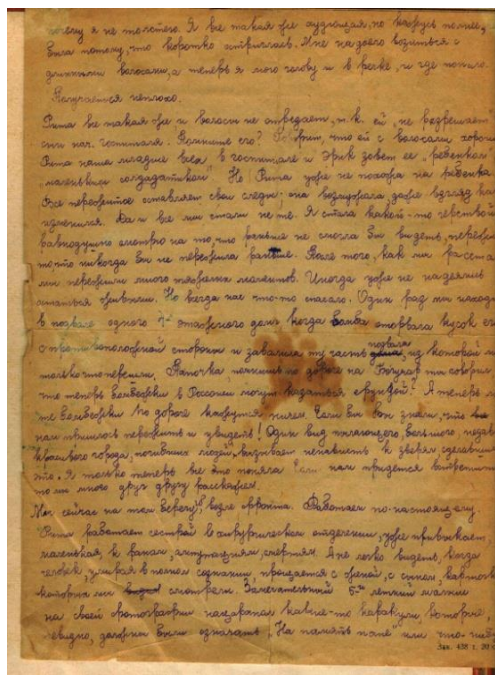 почему я не толстею. Я все такая же худющая, но кажусь полнее,
была потому, что коротко стриглась. Мне надоело возиться с
длинными волосами, а теперь я мою голову и в реке, и где попало.
Получается неплохо.
Рита все такая же и волосы не отрезает, т.к. ей "не разрешает"
нач. госпиталя. Помнишь его? Говорит, что ей с волосами хорошо
Рита наша младше всех в госпитале и Эрик зовет ее "ребенком"
"маленьким солдатиком". Но Рита уже не похожа на ребенка.
Все пережитое оставляет свои следы; она возмужала, даже взгляд
изменился. Да и все мы стали не те. Я стала какой-то черствой
равнодушно смотрю на то, что раньше не смогла бы видеть,
то, что никогда бы не пережила раньше. После того, как мы расста
мы пережили много тяжелых моментов. Иногда уже не надеялись
остаться живыми. Но всегда нас что-то спасало. Один раз мы
в подвале одного 4х этажного дома, когда бомба оторвала кусок его
с противоположной стороны и завалила ту часть подвала, из которой мы
только что перешли. Раечка, помнишь по дороге на ты говорила
что теперь бомбежки в Россоши могут казаться ерундой? А теперь и
те бомбежки по дороге кажутся ничем. Если бы вы знали, что
нам пришлось пережить и увидеть! Один вид пылающего, большого,
красивого города, погибших людей, вызывает ненависть к зверям, сделавшим
это. Я только теперь все это поняла. Если нам придется встретиться
то мы много друг другу расскажем.
Мы сейчас на том берегу, возле фронта. Работаем по-настоящему.
Рита работает сестрой в хирургическом отделении, уже привыкает,
маленькая, к ранам, ампутациям, смертям. А не легко видеть, когда
человек, умирая в полном сознании, прощается с женой, с сыном,
которых мы смотрели. Замечательный 5-летний мальчик
на своей фотографии нацарапал какие-то каракули, которые,
видно, должны были означать "На память папе" или что-нибудь
Зак. 438 т. 20